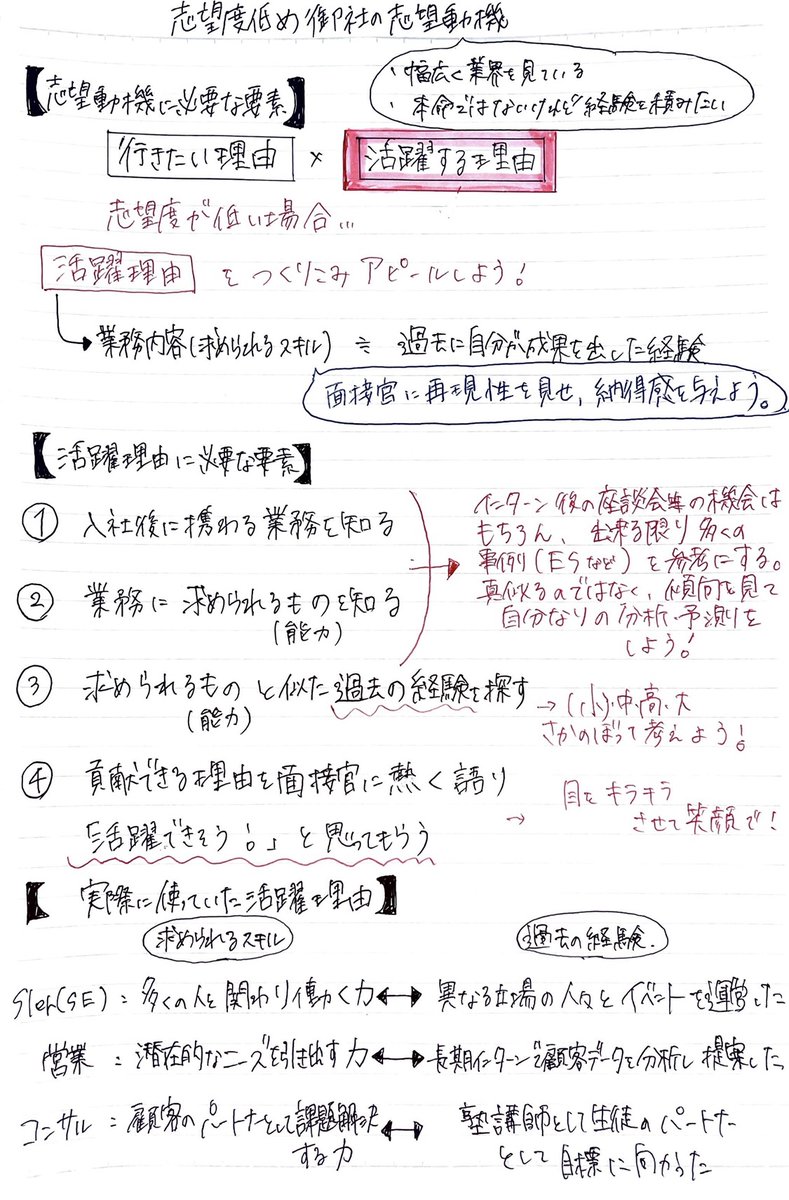 志望度低め御社の志望動機
・幅広く業界を見ている
・本命ではないけれど経験を積みたい
【志望動機に必要な要素】
行きたい理由 × 活躍する理由
志望度が低い場合…
活躍理由 をつくりこみアピールしよう!
業務内容(求められるスキル) ≒ 過去に自分が成果を出した経験
面接官に再現性を見せ、納得感を与えよう。
【活躍理由に必要な要素】
① 入社後に携わる業務を知る
② 業務に求められるものを知る
(能力)
インターン後の座談会等の機会は
もちろん、出来る限り多くの
事例(ESなど)を参考にする。
真似るのではなく、傾向を見て
自分なりの分析・予測を
しよう!
③ 求められるものと似た過去の経験を探す
(能力)
→(小)・中・高・大
さかのぼって考えよう!
④ 貢献できる理由を面接官に熱く語り
「活躍できそう!」と思ってもらう
→ 目をキラキラ
させて笑顔で!
【実際に使っていた活躍理由】
求められるスキル 過去の経験.
SIer(SE) : 多くの人と関わり働く力 ↔ 異なる立場の人々とイベントを運営した
営業 : 潜在的なニーズを引き出す力 ↔ 長期インターンで顧客データを分析し提案した
コンサル : 顧客のパートナーとして課題解決 ↔ 塾講師として生徒のパートナー
する力 として目標に向かった